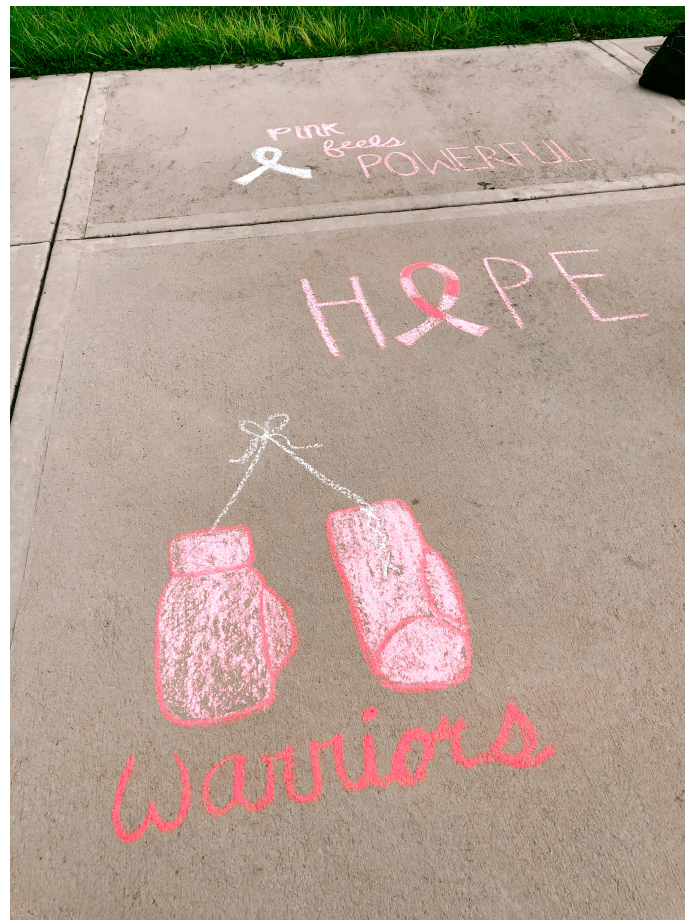 PINK
feels
POWERFUL
HOPE
Warriors